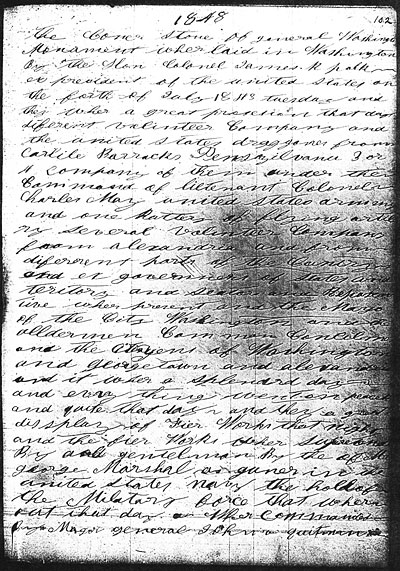 1848
102
the Corner Stone of general Washington
Monament wher laid in Washington
By the Hon Colonel James K polk
ex president of the united States on
the forth of July 1848 tuesday and
they wher a great prosession that day
diferent valunteer Company and
the united states dragoones from
Carlile Barracks Pensylvania 3 or
4 company of them under the
Command of lieutenant Colonel
Charles May united states army
and one battery of flying artile
ry several valunteer Company
from alexandria and from
diferent parts of the
and et governers of states and
teritory and
tive wher present and the Mare
of the City Washington and
alldermen Common Councilm
and the Citezens of Washington
and Georgetown and alexandria
and it wher a splendid day
and every thing went on
and quite that day and they a grea
display of Fier Works that night
and the fier Works wher
By a old gentelman By the of
george Marshal a guner in the
united States navy the hole of
the Military force that wher
out that day wher Commanded
By Major general John a quitman